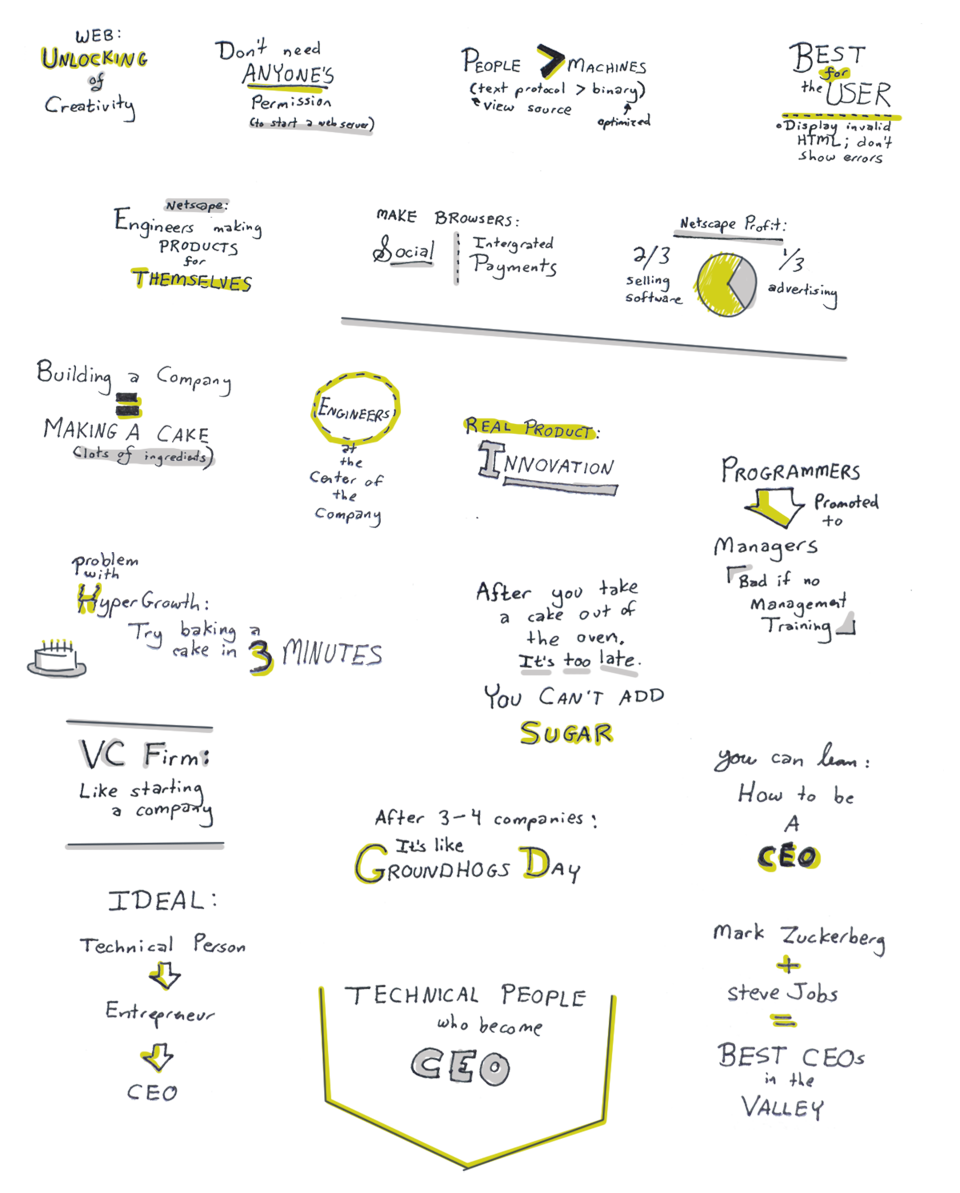 WEB:
UNLOCKING
of
Creativity
Don't need
ANYONE'S
Permission
(to start a web server)
PEOPLE > MACHINES
(text protocol > binary)
view source
optimized
BEST
for
the USER
• Display invalid
HTML; don't
show errors
Netscape:
Engineers making
PRODUCTS
for
THEMSELVES
MAKE BROWSERS:
Social
Intergrated
Payments
Netscape Profit:
2/3
selling
software
1/3
advertising
Building a Company
=
MAKING A CAKE
(lots of ingredients)
ENGINEERS
at
the
Center of
the
Company
REAL PRODUCT:
INNOVATION
PROGRAMMERS
Promoted
to
Managers
Bad if no
Management
Training
problem
with
HyperGrowth:
Try baking a
cake in 3 MINUTES
After you take
a cake out of
the oven,
It's too late.
YOU CAN'T ADD
SUGAR
VC Firm:
Like starting
a company
After 3-4 companies:
It's like
GROUNDHOGS DAY
you can learn:
How to be
A
CEO
IDEAL:
Technical Person
Entrepreneur
CEO
TECHNICAL PEOPLE
who become
CEO
Mark Zuckerberg
+
Steve Jobs
=
BEST CEOs
in the
VALLEY